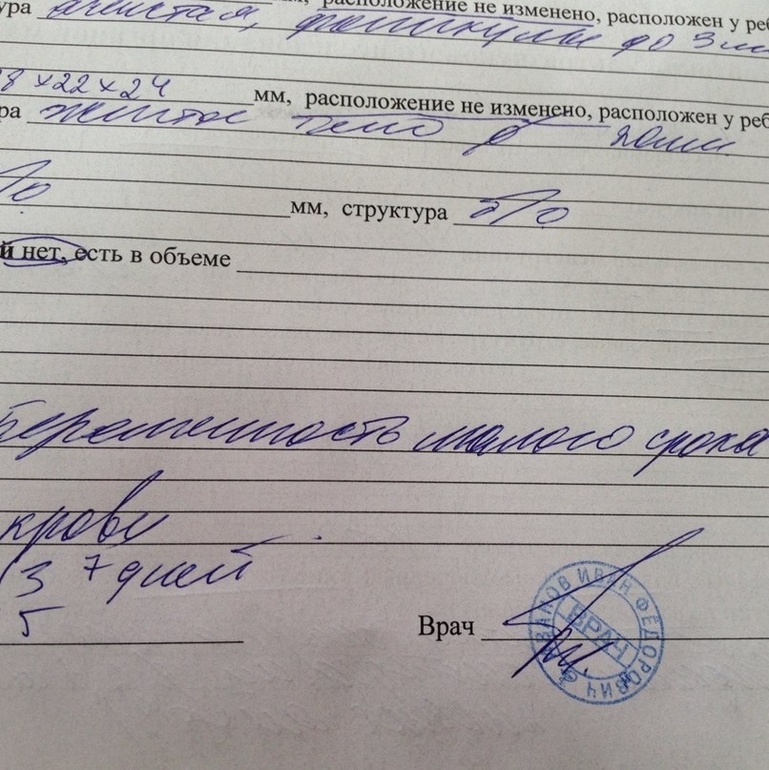 ура ячеистая, фолликулы до 3 мм
расположение не изменено, расположен у реб
28 x 22 x 24 мм, расположение не изменено, расположен у реб
ра желтое тело d 20мм
б/о мм, структура б/о
й нет, есть в объеме
Беременность малого срока
крови
3 7 дней
5
Врач
ИВАНОВ ИВАН ФЕДОРОВИЧ
ВРАЧ